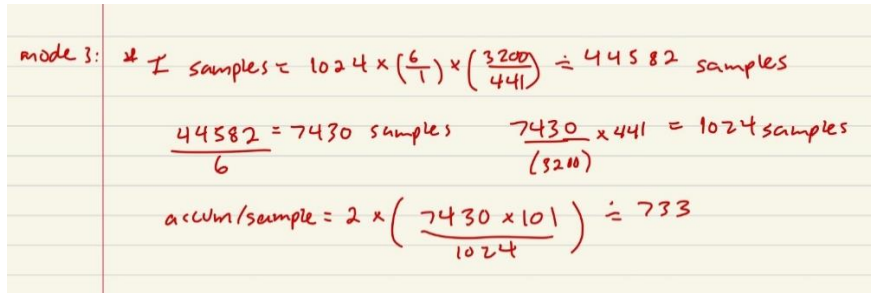 mode 3: * I samples = 1024 × (6/1) × (3200/441) ≐ 44582 samples
44582/6 = 7430 samples 7430/(3200) × 441 = 1024 samples
accum/sample = 2 × (7430 × 101/1024) ≐ 733